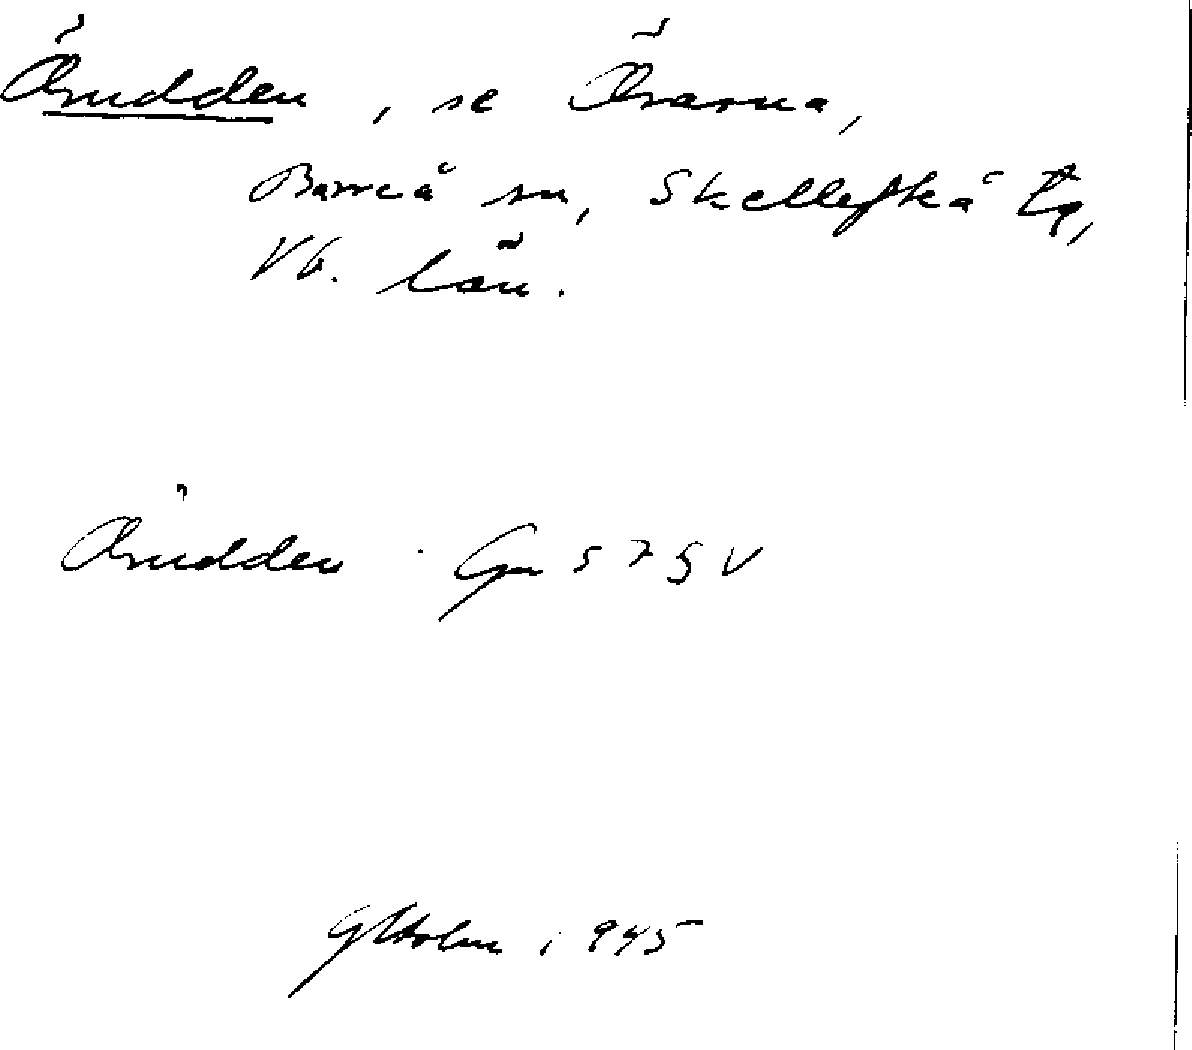 Örudden, se Örarna,
Bureå sn, Skellefteå tg,
Vb. län.
Örudden Gen 57 5 V
G Holm 1945